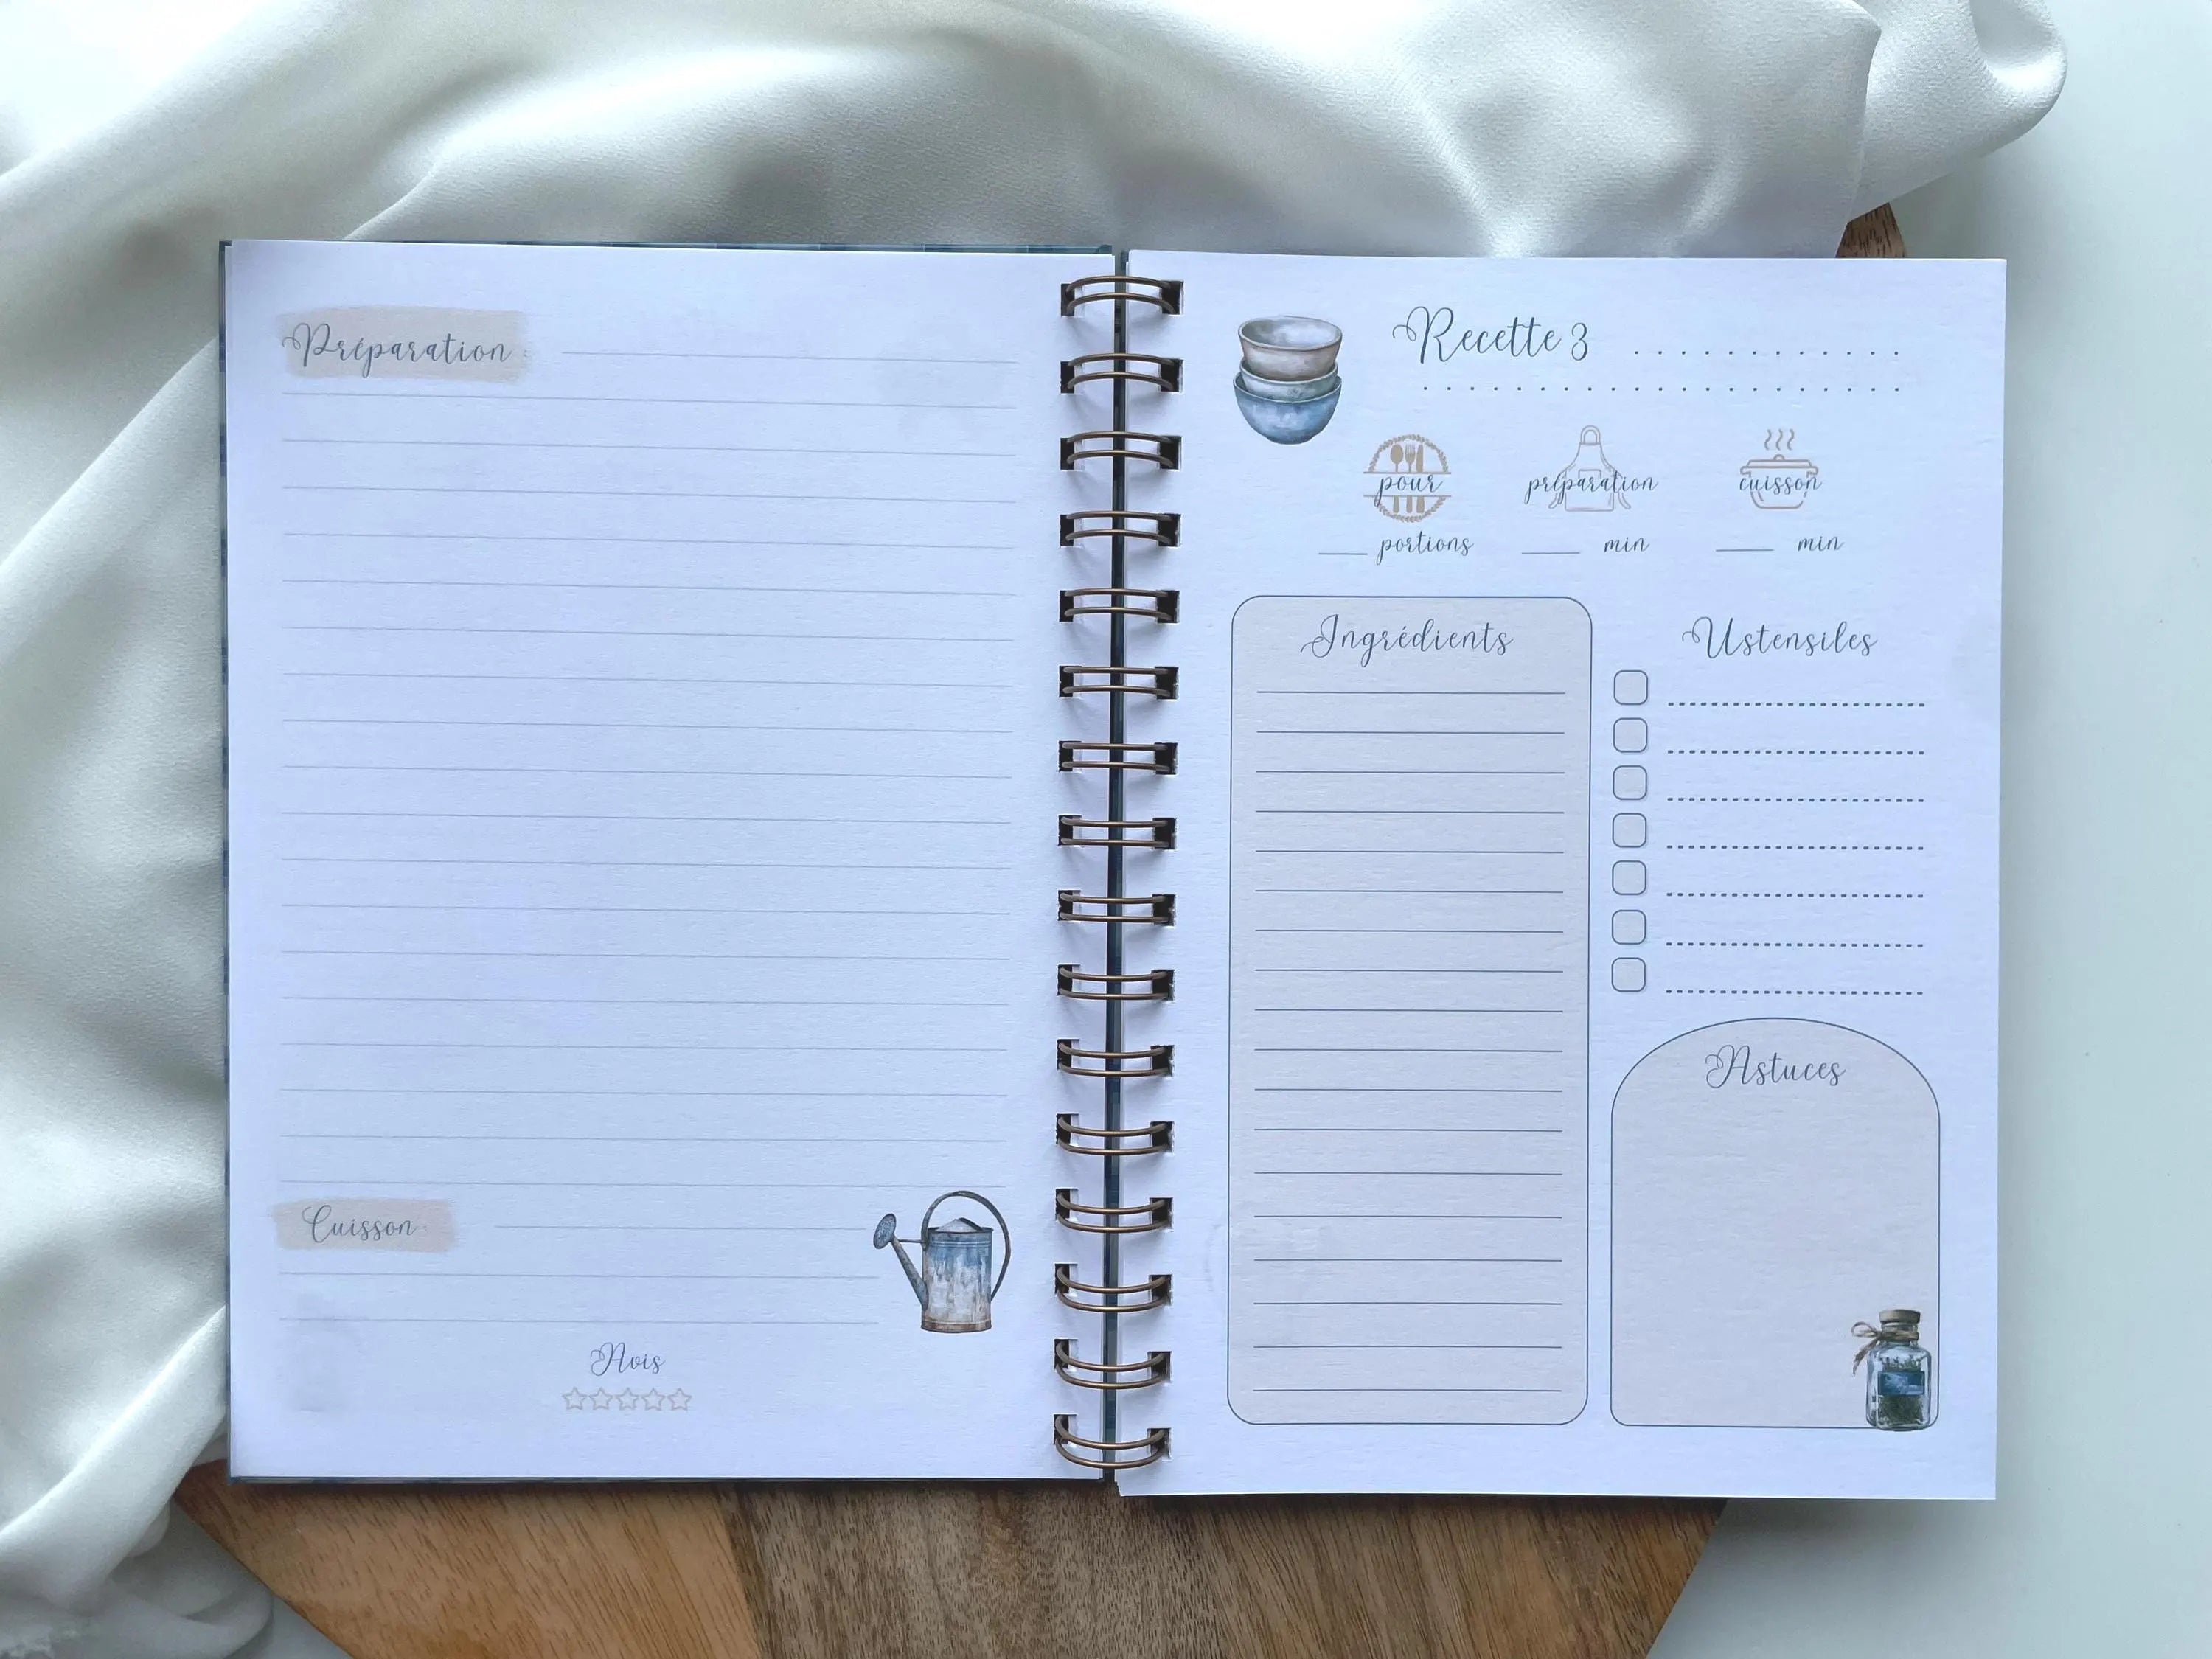 Préparation
Cuisson
Avis
Recette 3
pour préparation cuisson
portions min min
Ingrédients
Ustensiles
Astuces